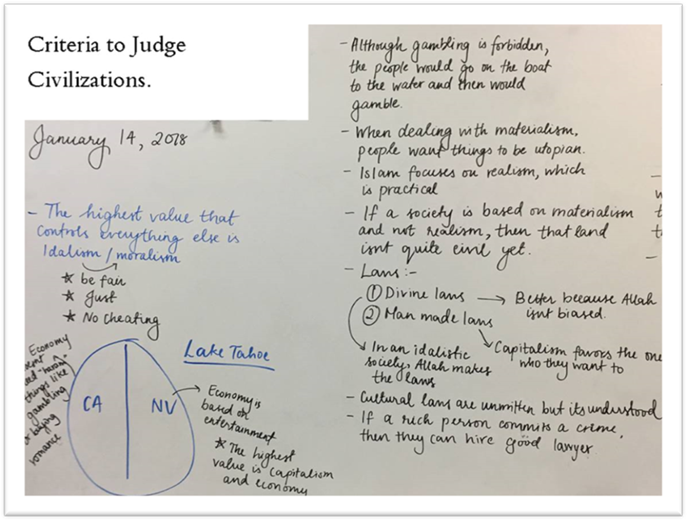 Criteria to Judge
Civilizations.
January 14, 2018
- The highest value that
controls everything else is
Idalism / moralism
★ be fair
★ Just
★ No cheating
Lake Tahoe
CA
NV
Economy
things like
gambling
buying
romance
Economy is
based on
entertainment
★ The highest
value is capitalism
and economy
- Although gambling is forbidden,
the people would go on the boat
to the water and then would
gamble.
- When dealing with materialism,
people want things to be utopian.
- Islam focuses on realism, which
is practical
- If a society is based on materialism
and not realism, then that land
isnt quite civil yet.
- Laws :-
① Divine laws → Better because Allah
isnt biased.
② Man made laws
In an idalistic
society, Allah makes
the laws
Capitalism favors the one
who they want to
- Cultural laws are unwritten but its understood
- If a rich person commits a crime,
then they can hire good lawyer